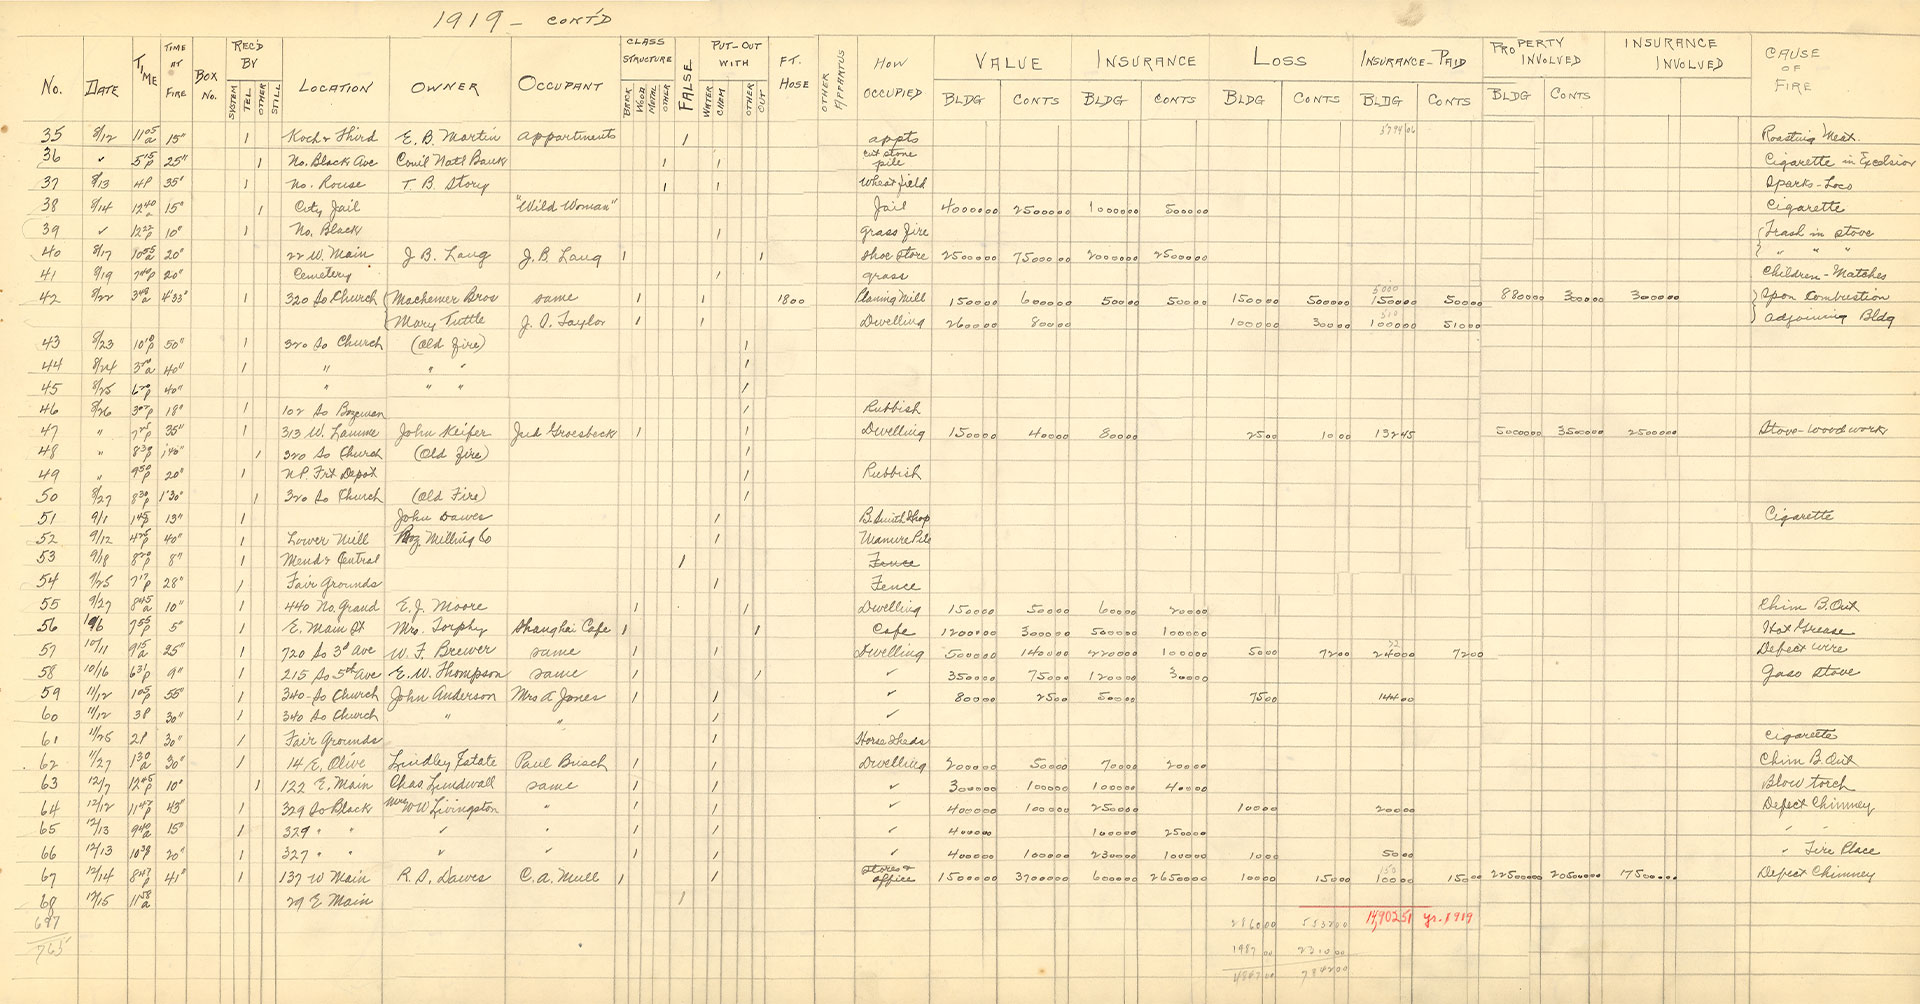 1919 - CONT'D
No. DATE TIME TIME AT FIRE BOX No. REC'D BY SYSTEM TEL OTHER STILL LOCATION OWNER OCCUPANT CLASS STRUCTURE BRICK WOOD METAL OTHER FALSE PUT-OUT WITH WATER CHEM OTHER OUT FT. HOSE OTHER APPARATUS HOW OCCUPIED VALUE BLDG CONTS INSURANCE BLDG CONTS LOSS BLDG CONTS INSURANCE-PAID BLDG CONTS PROPERTY INVOLVED BLDG CONTS INSURANCE INVOLVED CAUSE OF FIRE
35 8/12 11 05 a 15" 1 Koch & Third E. B. Martin appartments 1 appts 3794 06 Roasting Meat
36 ✓ 5 15 p 25" 1 No. Black Ave Com'l Nat'l Bank 1 1 cut stone pile Cigarette in Excelsior
37 8/13 4P 35" 1 No. Rouse T. B. Story 1 1 Wheat field Sparks-Loco
38 8/14 12 40 a 15" 1 City Jail "Wild Woman" Jail 4000 00 2500 00 1000 00 500 00 Cigarette
39 ✓ 12 22 p 10" 1 No. Black 1 grass fire Trash in stove
40 8/17 10 55 a 20" 22 W. Main J. B. Lang J. B. Lang 1 1 shoe store 2500 00 7500 00 2000 00 2500 00 " " "
41 8/19 7 40 p 20" Cemetery 1 grass Children-Matches
42 8/22 3 48 a 4'33" 1 320 So Church Machemer Bros same 1 1 1800 Planing Mill 1500 00 6000 00 500 00 500 00 1500 00 5000 00 5000 1500 00 500 00 8800 00 3000 00 3000 00 Spon Combustion
Mary Tuttle J. S. Taylor 1 1 Dwelling 2600 00 800 00 1000 00 300 00 510 1000 00 510 00 adjoining Bldg
43 8/23 10 10 p 50" 1 320 So Church (Old fire) 1
44 8/24 3 20 a 40" 1 " " " 1
45 8/25 6 20 p 40" " " " 1
46 8/26 3 02 p 18" 1 102 So Bozeman 1 Rubbish
47 " 7 25 p 35" 1 313 W. Lamme John Keifer Jud Groesbeck 1 1 Dwelling 1500 00 400 00 800 00 25 00 10 00 132 45 5000 00 3500 00 2500 00 Stove-woodwork
48 " 8 38 p 1'40" 1 320 So Church (Old fire) 1
49 " 9 50 p 20" 1 N.P. Frt Depot 1 Rubbish
50 8/27 8 30 p 1'30" 1 320 So Church (Old Fire) 1
51 9/1 1 45 p 13" 1 John Dawes 1 B. Smith Shop Cigarette
52 9/12 4 25 p 40" 1 Lower Mill Boz Milling Co 1 Manure Pile
53 9/18 8 20 p 8" 1 Mend & Central 1 Fence
54 9/25 7 17 p 28" 1 Fair Grounds 1 Fence
55 9/27 8 45 a 10" 1 440 No. Grand E. J. Moore 1 1 Dwelling 1500 00 500 00 600 00 200 00 Chim B. Out
56 10/6 7 55 p 5" 1 E. Main St Mrs. Torphy Shanghai Cafe 1 1 Cafe 12000 00 3000 00 5000 00 1000 00 Hot Grease
57 10/11 9 15 a 25" 1 720 So 3d Ave W. F. Brewer same 1 1 Dwelling 5000 00 1400 00 2200 00 1000 00 50 00 72 00 240 00 72 00 Defect wire
58 10/16 6 31 p 9" 1 215 So 5th Ave E. W. Thompson same 1 1 ✓ 3500 00 750 00 1200 00 300 00 Gaso Stove
59 11/12 1 05 p 55" 1 340 So Church John Anderson Mrs A Jones 1 1 ✓ 800 00 25 00 500 00 75 00 144 00
60 11/12 3P 30" 1 340 So Church " " 1 ✓
61 11/25 2P 30" 1 Fair Grounds 1 Horse Sheds Cigarette
62 11/27 1 30 a 30" 1 14 E. Olive Lindley Estate Paul Busch 1 1 Dwelling 2000 00 500 00 700 00 200 00 Chim B. Out
63 12/7 12 45 p 10" 1 122 E. Main Chas Lundwall same 1 1 ✓ 3000 00 1000 00 1000 00 400 00 Blow torch
64 12/12 11 47 p 43" 1 329 So Black Mrs W W Livingston " 1 1 ✓ 4000 00 1000 00 2500 00 100 00 200 00 Defect Chimney
65 12/13 9 40 a 15" 1 329 " " ✓ " 1 1 ✓ 4000 00 1000 00 2500 00 " "
66 12/13 10 38 p 20" 1 327 " " ✓ ✓ 1 1 ✓ 4000 00 1000 00 2300 00 1000 00 10 00 50 00 " Fire Place
67 12/14 8 47 p 41" 1 137 W Main R. S. Dawes C. A. Mull 1 1 stores & office 15000 00 3700 00 6000 00 2650 00 100 00 150 00 150 100 00 150 00 22500 00 20500 00 17500 00 Defect Chimney
68 12/15 11 58 a 29 E Main 1
697 2860 00 5532 00 14,902 51 yr. 1919
765 1987 00 2310 00
4847 00 7842 00